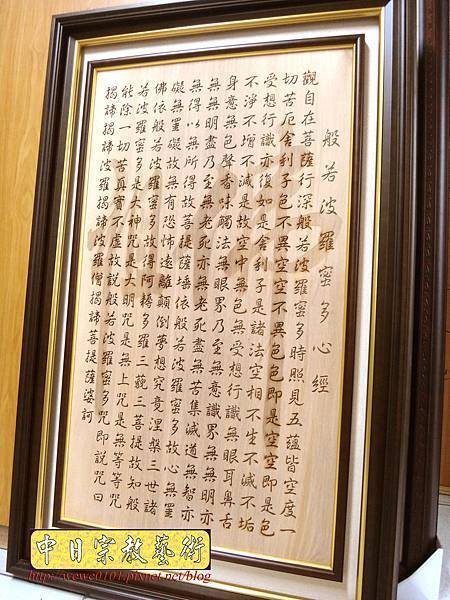 般若波羅蜜多心經
觀自在菩薩行深般若波羅蜜多時照見五蘊皆空度一
切苦厄舍利子色不異空空不異色色即是空空即是色
受想行識亦復如是舍利子是諸法空相不生不滅不垢
不淨不增不減是故空中無色無受想行識無眼耳鼻舌
身意無色聲香味觸法無眼界乃至無意識界無無明亦
無無明盡乃至無老死亦無老死盡無苦集滅道無智亦
無得以無所得故菩提薩埵依般若波羅蜜多故心無罣
礙無罣礙故無有恐怖遠離顛倒夢想究竟涅槃三世諸
佛依般若波羅蜜多故得阿耨多羅三藐三菩提故知般
若波羅蜜多是大神咒是大明咒是無上咒是無等等咒
能除一切苦真實不虛故說般若波羅蜜多咒即說咒曰
揭諦揭諦波羅揭諦波羅僧揭諦菩提薩婆訶
中日宗教藝術
http://wewe0101.pixnet.net/blog